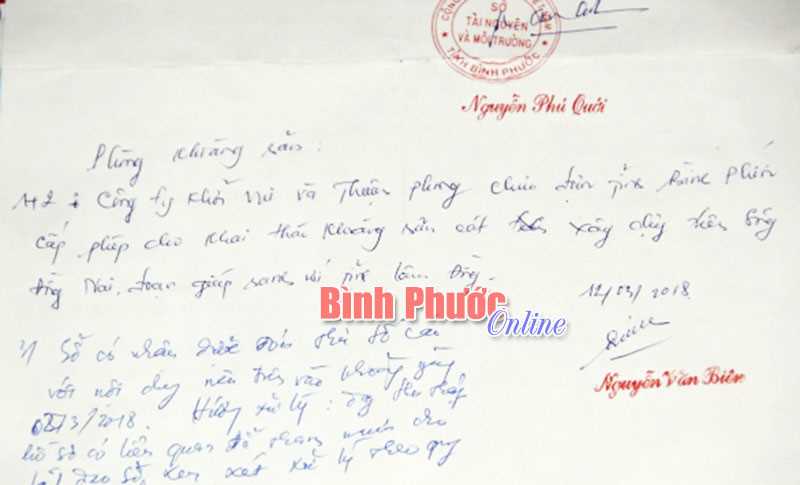 SỞ
TÀI NGUYÊN
VÀ MÔI TRƯỜNG
TỈNH BÌNH PHƯỚC
Nguyễn Phú Quới
Phòng Khoáng sản:
1+2: Công ty Khởi và Thuận phong chưa được tỉnh Bình Phước
cấp phép cho khai thác khoáng sản cát xây dựng trên sông
Đồng Nai, đoạn giáp ranh với tỉnh Lâm Đồng.
12/03/2018
Bình Phước
Online
Nguyễn Văn Biên
3/ Sở có nhận được đơn
với nội dung nêu trên vào khoảng
/3/2018. Hướng xử lý:
hồ sơ có liên quan để tham mưu cho
đạo Sở xem xét xử lý theo quy